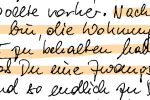 sollte vorher. Nach
bin, die Wohnung
zu behalten hat
Du eine Zwangs
und so endlich zu